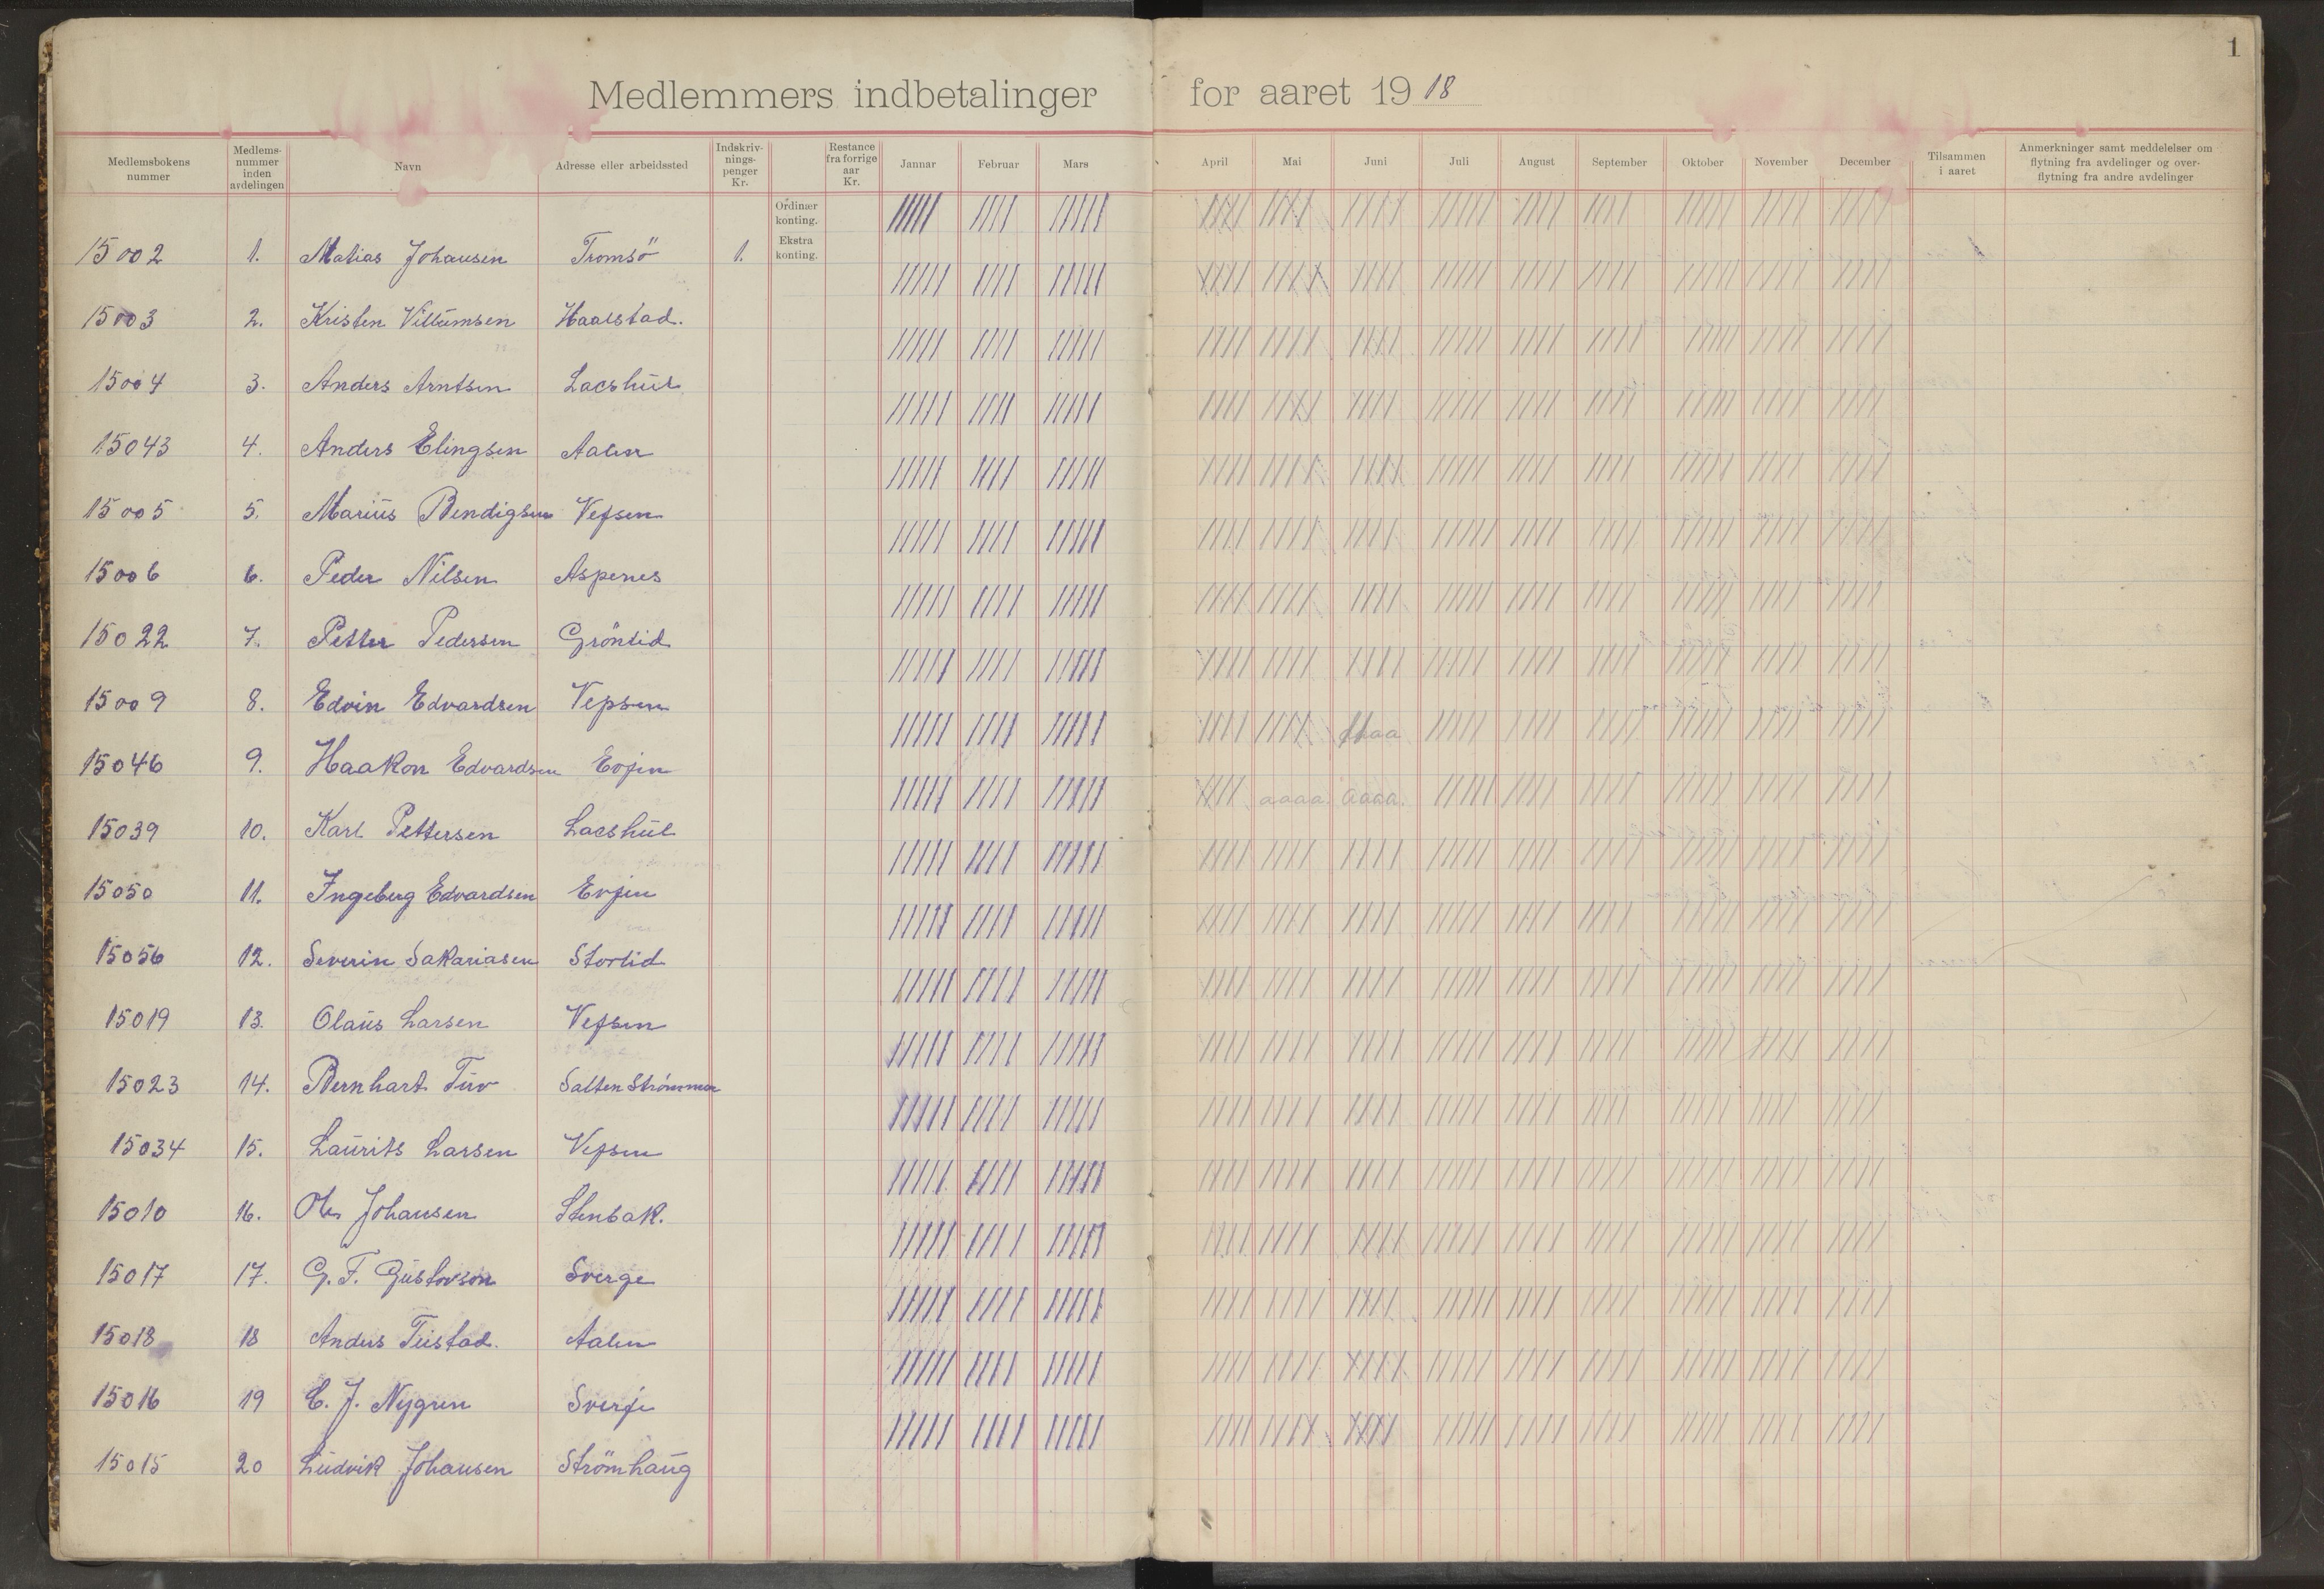 1
Medlemmers indbetalinger for aaret 1918
Medlemsbokens nummer
Medlems-nummer inden avdelingen
Navn
Adresse eller arbeidssted
Indskriv-nings-penger Kr.
Restance fra forrige aar Kr.
Januar Februar Mars April Mai Juni Juli August September Oktober November December
Tilsammen i aaret
Anmerkninger samt meddelelser om flytning fra avdelinger og over-flytning fra andre avdelinger
Ordinær konting.
Ekstra konting.
15002 1. Matias Johansen Tromsö 1.
15003 2. Kristen Villumsen
15004 3. Anders Arntsen Lacshul
15043 4. Anders Elingsen Aalen
15005 5. Marius Bendigsen Vefsen
15006 6. Peder Nilsen Aspenes
15022 7. Petter Pedersen Grönlid
15009 8. Edvin Edvardsen Vefsen
15046 9. Haakon Edvardsen Evjen aa
15039 10. Karl Pettersen Lacshul aaaa. aaaa.
15050 11. Ingeberg Edvardsen Evjen
15056 12. Severin Sakariasen Storlid
15019 13. Olaus Larsen Vefsen
15023 14. Bernhart Tuv Salten Strömmen
15034 15. Laurits Larsen Vefsen
15010 16. Ole Johansen Stenbak.
15017 17. G. F. Gustovson Sverge
15018 18 Anders Teistad. Aalen
15016 19 C. J. Nygren Sverje
15015 20 Ludvik Johansen Strömhaug